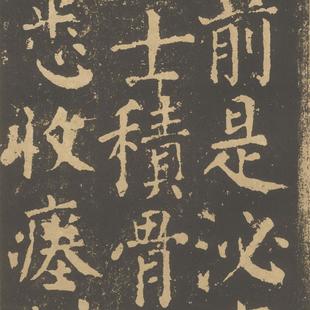 前是泌
士積骨
悉收瘞